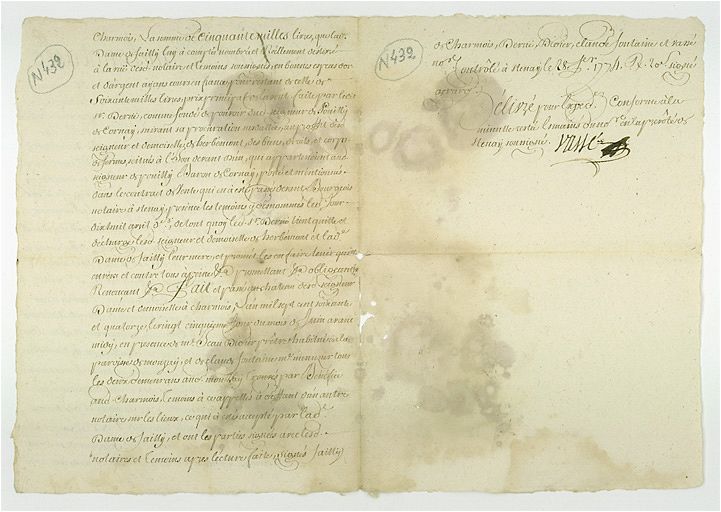 N 432
Charmois, La somme de Cinquante milles livres, que lad.
Dame de Sailly luy à compté nombré et Réellement délivré
à la vüe desd. notaire et temoins soussignés, en bonnes especes d'or
et d'argent ayans cours en france pour restant de celle de
Soixante milles livres prix principal de la vente faite par led.
Sr. Derué, comme fondé de pouvoir dud. seigneur de Pouilly
de Cornay, suivant sa procuration au profit desd.
seigneur et demoiselles de herbemont, des biens, droits, et
de ferme, scitués à qui appartenoient aud.
seigneur de pouilly Baron de Cornay, porté et mentionnés
dans le contract de Vente qui en à été passé devant Bourgeois
notaire à Stenay, presence les temoins y denommés led. jour
dixhuit avril dr. de tout quoy led. Sr. Derué tient quitte et
décharge lesd. seigneur et demoiselle de herbemont et lad.
Dame de Sailly leur mere, et promet les en faire tenir quitte
envers et contre tous à peine &a promettant &a obligeant &a
Renonçant &a Fait et passé au chateau desd. seigneur
Dame et demoiselle à charmois, L'an mil sept cent soixante
et quatorze, le vingt cinquième jour du mois de Juin avant
midy, en presence de Mre. Jean Didier prêtre habitué à la
paroisse de mouzay, et de claude fontaine Me. menuisier tous
les deux demeurans aud. mouzay, trouvés par
aud. Charmois, temoins à ce appellés à déffaut d'un autre
notaire sur les lieux, ce qui à été accepté par lad.
Dame de Sailly, et ont les parties signés avec lesd.
notaires et temoins apres lecture faite, signés Sailly
N 432
de Charmois, Derué, Didier, claude fontaine et vassé
nore. Controlé à Stenay le 28 1774. R. 20s signé

Délivré pour Expedn. Conforme à la
minutte restée és mains du nore. en la prevôté de
Stenay soussigné. Vassé